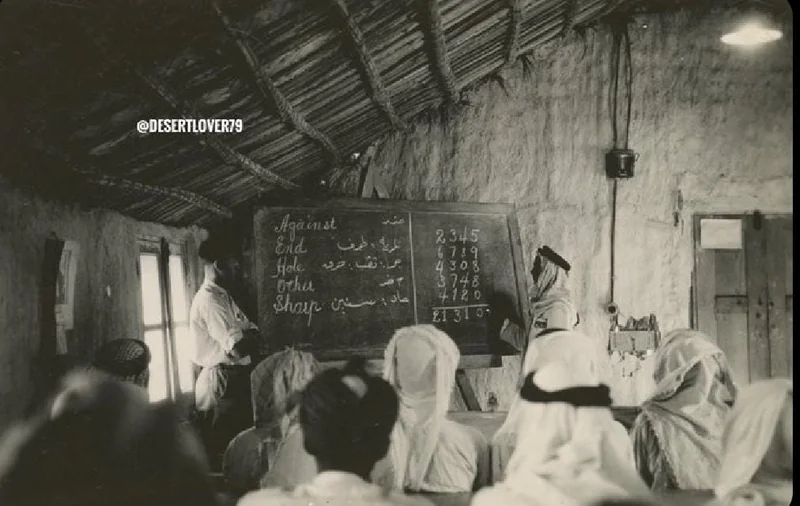 @DESERTLOVER79
Against ضد
End طرف
Hole ثقب
Other
Sharp حاد سنين
2345
6789
4308
3748
4120
21310